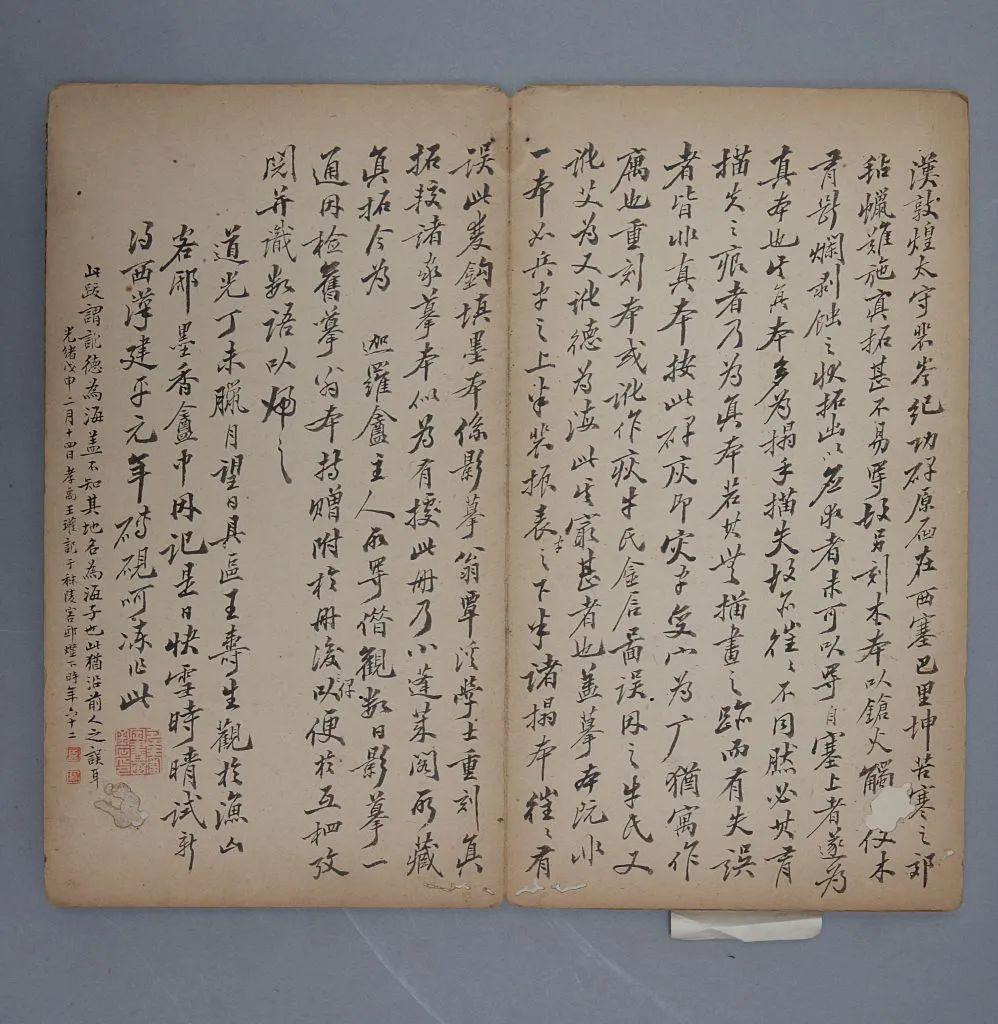 漢敦煌太守裴岑紀功碑原石在西塞巴里坤苦寒之郊
毡蠟難施真拓甚不易得故另刻木本以鎗火觸 仅木
有斷爛剥蝕之狀拓出以應求者未可以得自塞上者遂為
真本也其真本多為搨手描失故亦往々不同然必其有
描失之痕者乃為真本若其無描畫之跡而有失誤
者皆非真本按此碑灾即灾字 山為广猶寓作
庽也重刻本或訛作疢牛氏金石圖誤因之牛氏又
訛艾為又訛德為海此其寂甚者也蓋摹本既非
一本如兵字之上半裴振表之下半諸搨本往々有
誤此雙鈎填墨本係影摹翁覃溪學士重刻真
拓挍諸家摹本似為有據此册乃小蓬萊閣所藏
真拓今為 迦羅盦主人所得借觀數日影摹一
通因檢舊摹翁本持贈附於册後以便於互相攷
閱并識數語以歸之
道光丁未臘月望日具區王壽生觀於漁山
客邸墨香盦中因記是日快雪時晴試新
得西漢建平元年磚硯呵凍作此
此跋謂訛德為海蓋不知其地名為海子也此猶沿前人之誤耳
光緒戊申二月十四日孝禹王瓘記于秣陵客邸燈下時年六十二